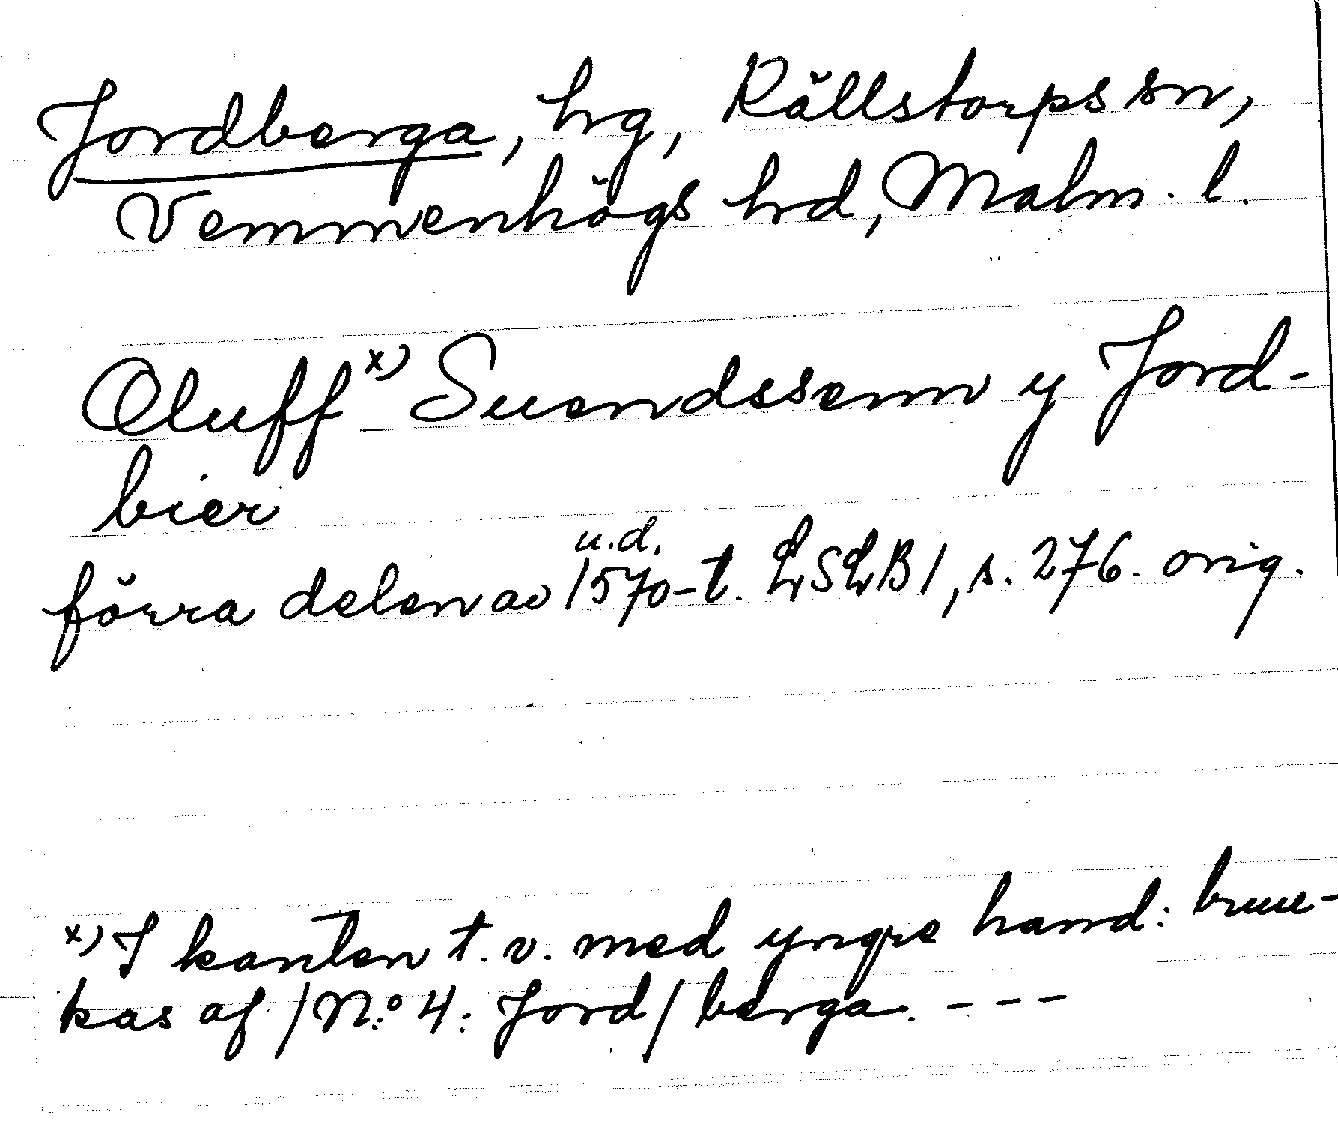 Jordberga, hrg, Källstorps sn,
Vemmenhögs hrd, Malm. l.
Oluff x) Suendssenn y Jord-
bier
u.d.
förra delen av 1570-t. LSLB 1, s. 276. orig.
x) I kanten t.v. med yngre hand: bruu-
kas af / N:o 4: Jord / berga. - - -